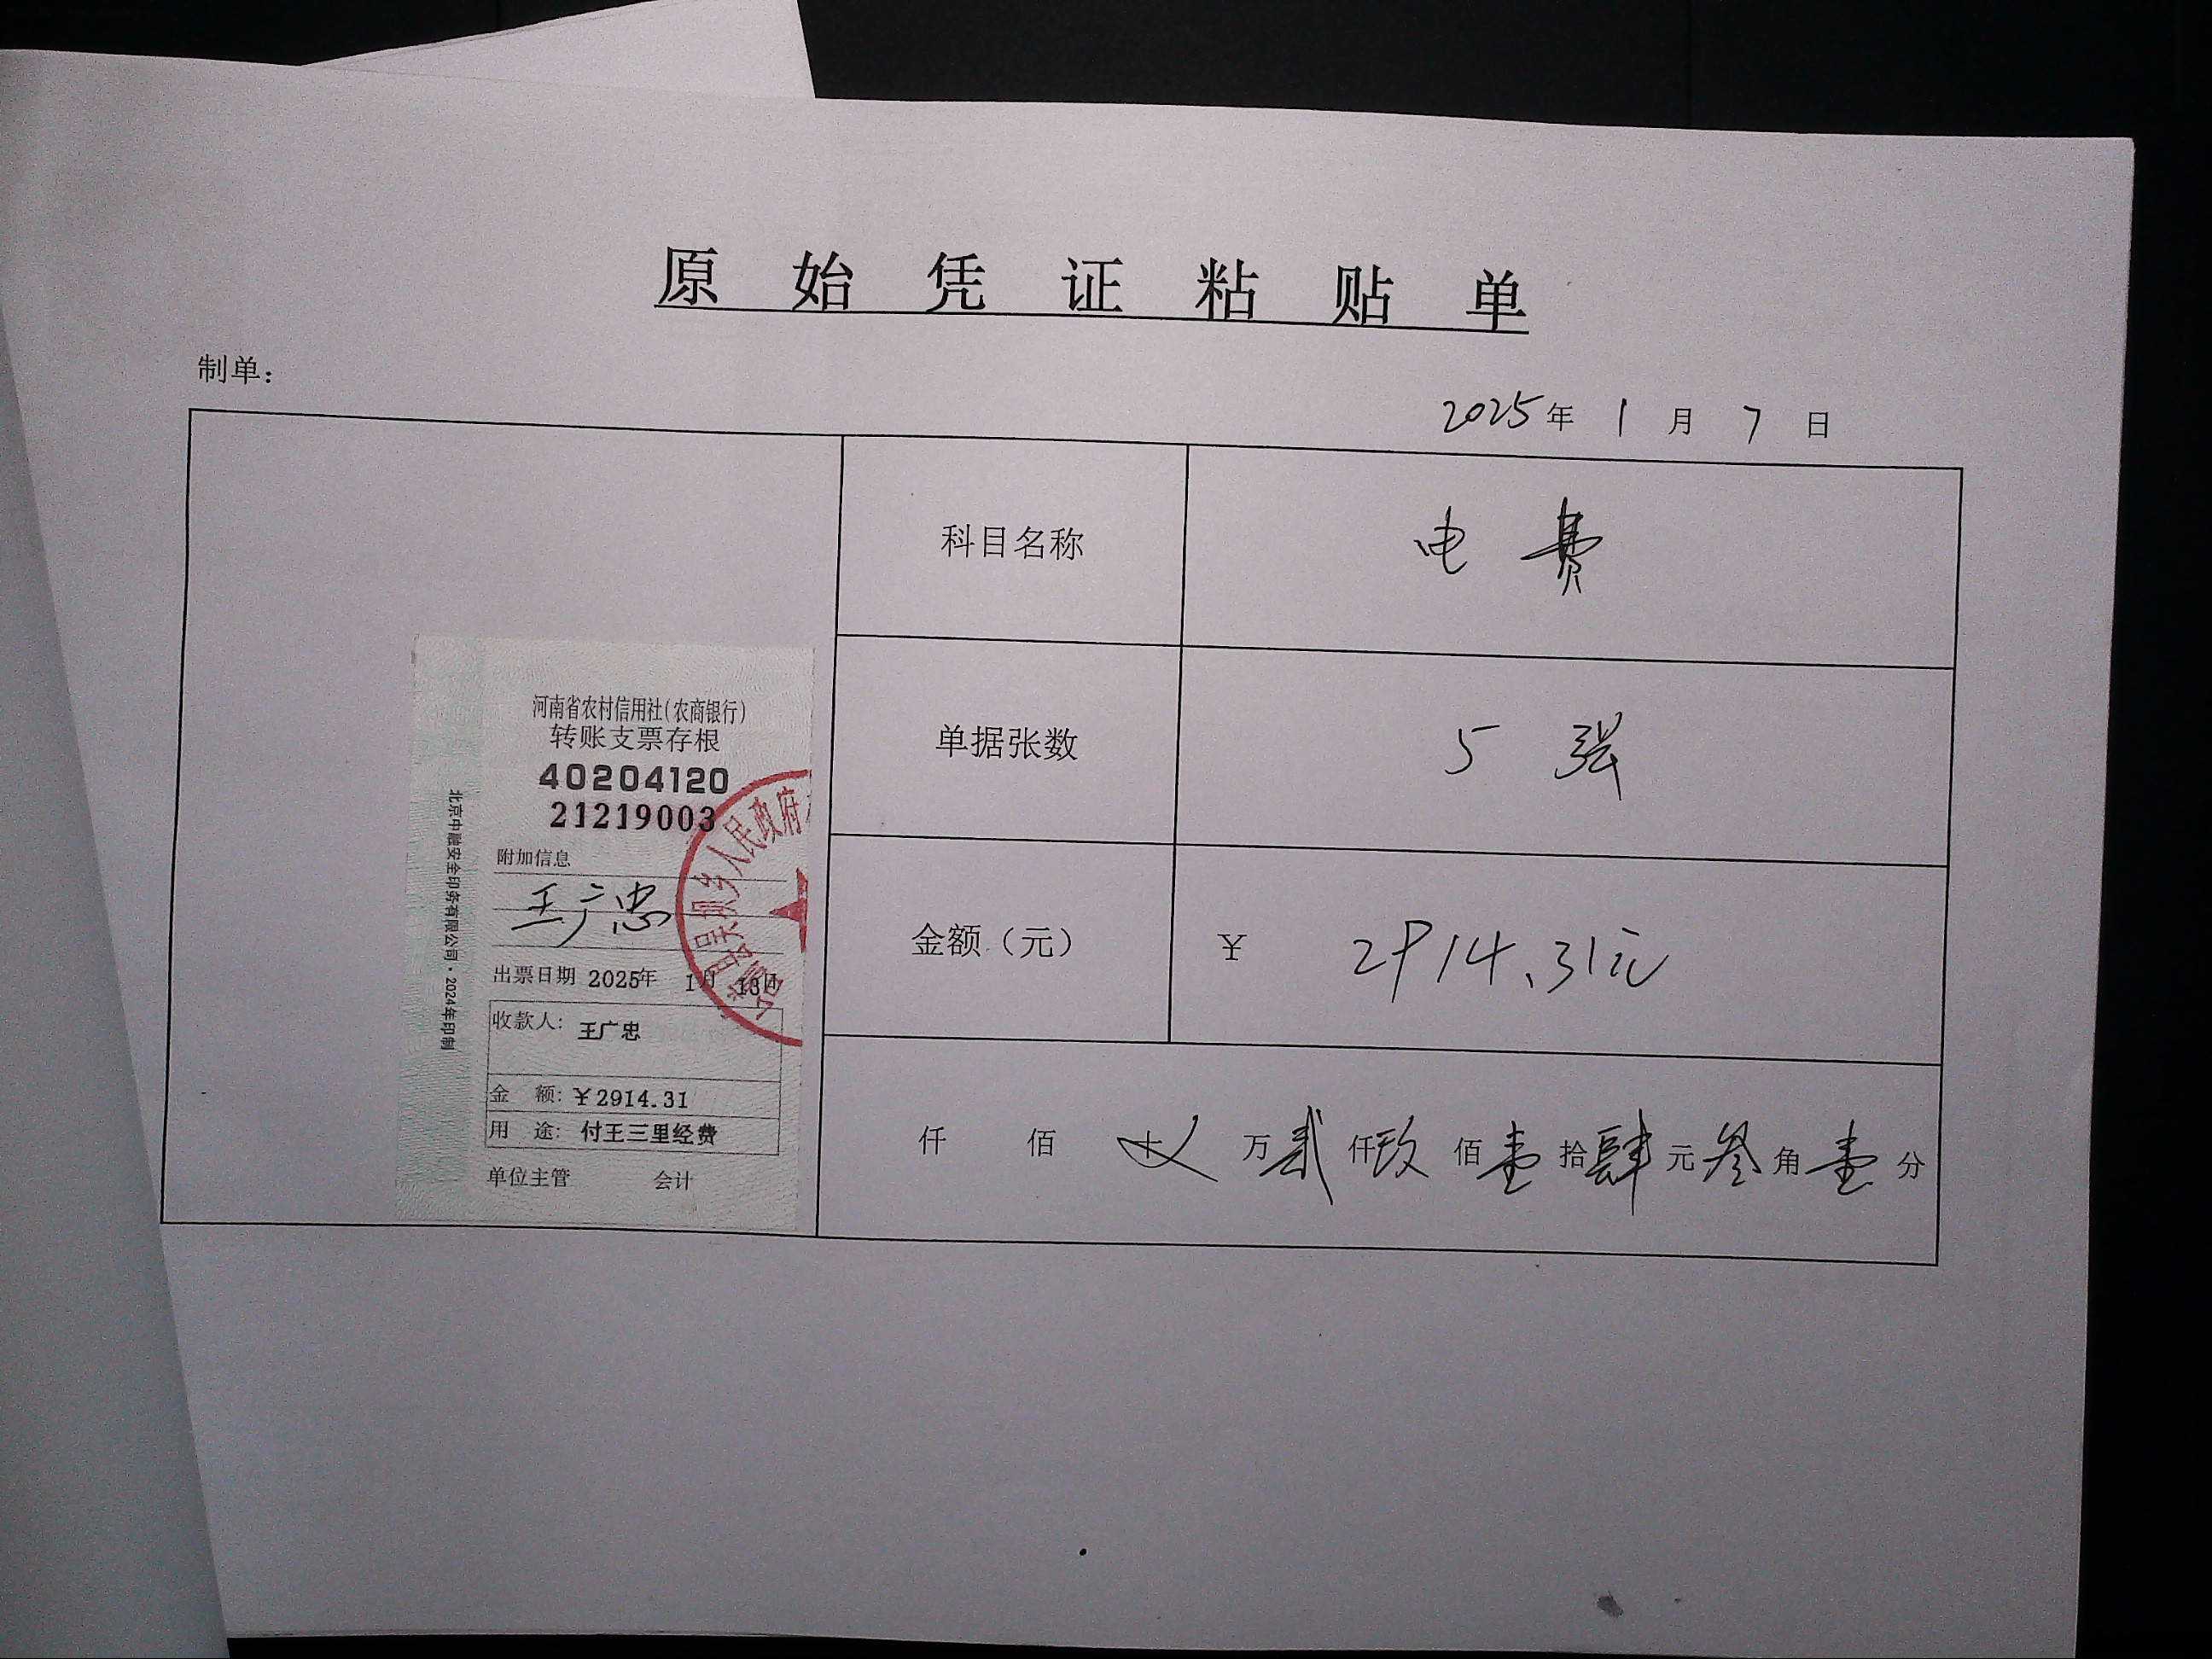 原始凭证粘贴单
制单：
2025年 1 月 7 日
科目名称 电费
单据张数 5 张
金额（元） ¥ 2914.31元
仟 佰 拾 万 贰 仟 玖 佰 壹 拾 肆 元 叁 角 壹 分
河南省农村信用社（农商银行）
转账支票存根
40204120
21219003
附加信息
王广忠
出票日期 2025年 1月 13日
收款人：王广忠
金 额：¥2914.31
用 途：付王三里经费
单位主管 会计
北京中融安全印务有限公司·2024年印制
县吴坝乡人民政府